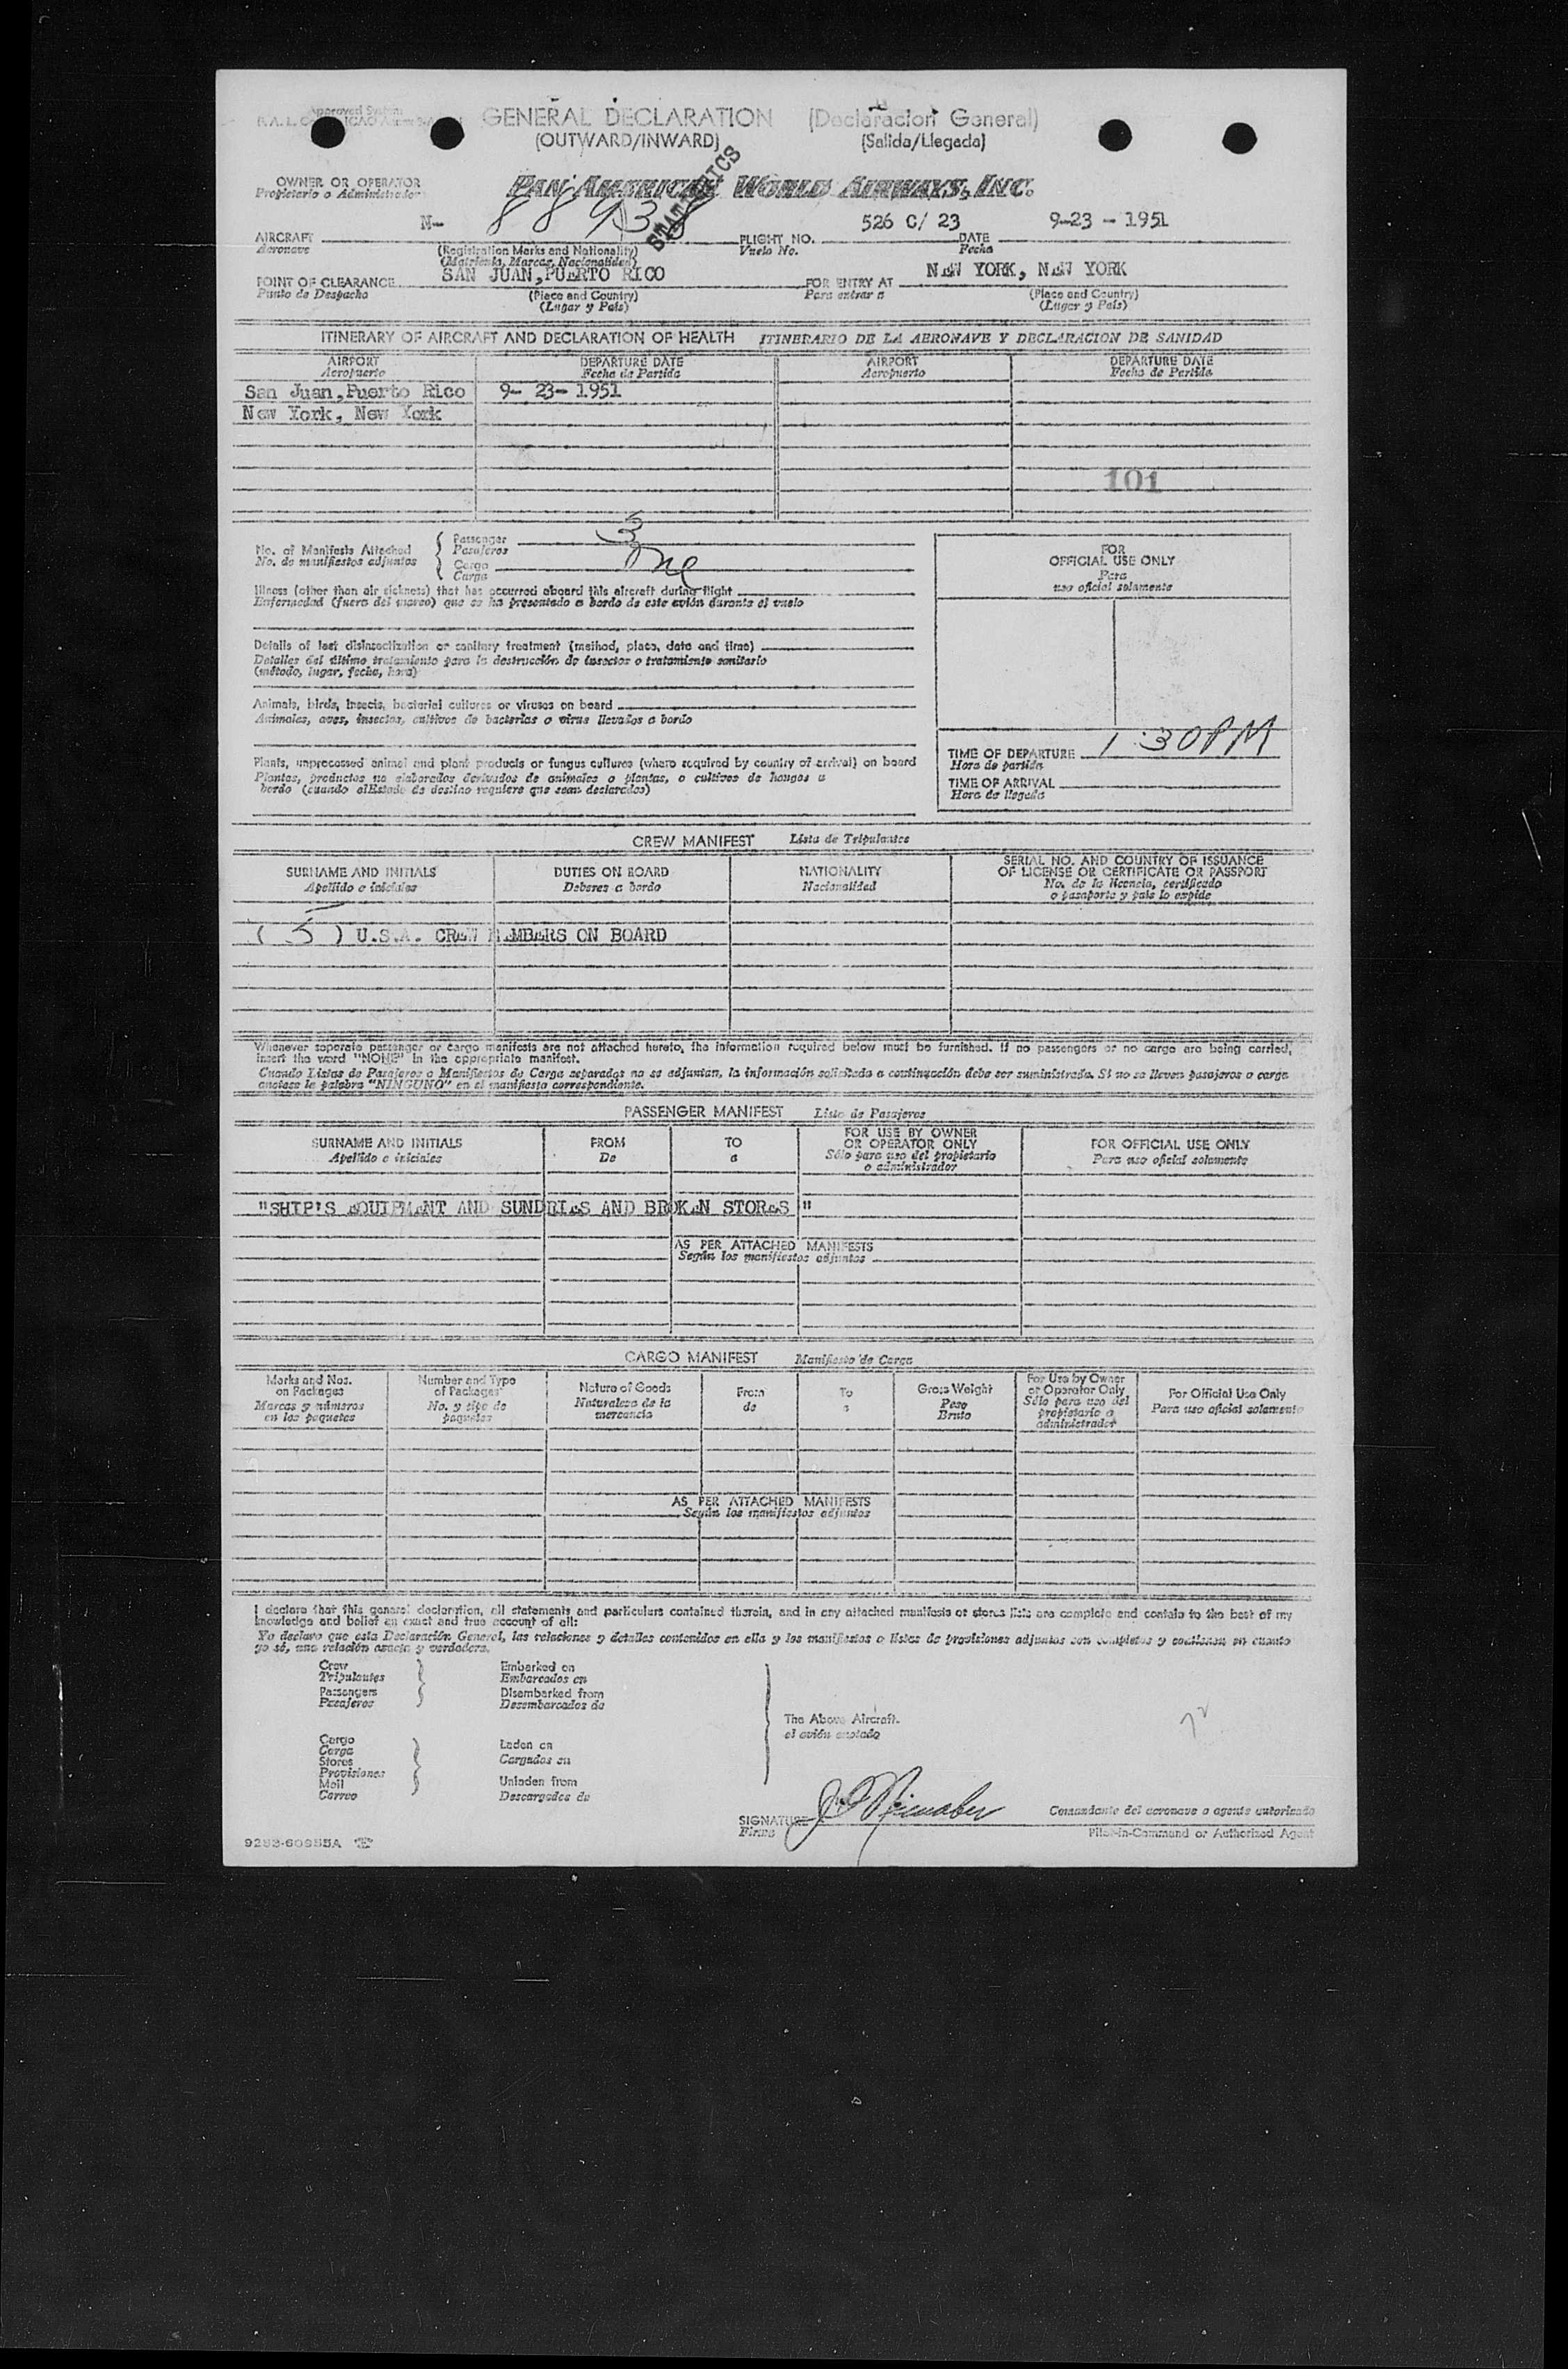 Approved System
GENERAL DECLARATION (Declaracion General)
(OUTWARD/INWARD) (Salida/Llegada)
STATISTICS
OWNER OR OPERATOR PAN AMERICAN WORLD AIRWAYS, INC.
Propietario o Administrador
AIRCRAFT N- 88938 FLIGHT NO. 526 C/ 23 DATE 9-23 - 1951
Aeronave (Registration Marks and Nationality) Vuelo No. Fecha
(Matricula, Marcas, Nacionalidad)
POINT OF CLEARANCE SAN JUAN, PUERTO RICO FOR ENTRY AT NEW YORK, NEW YORK
Punto de Despacho (Place and Country) Para entrar a (Place and Country)
(Lugar y País) (Lugar y País)
ITINERARY OF AIRCRAFT AND DECLARATION OF HEALTH ITINERARIO DE LA AERONAVE Y DECLARACION DE SANIDAD
AIRPORT DEPARTURE DATE AIRPORT DEPARTURE DATE
Aeropuerto Fecha de Partida Aeropuerto Fecha de Partida
San Juan, Puerto Rico 9- 23- 1951
New York, New York
101
No. of Manifests Attached Passenger 3
No. de manifiestos adjuntos Pasajeros
Cargo One
Carga
FOR
OFFICIAL USE ONLY
Para
uso oficial solamente
Illness (other than air sickness) that has occurred aboard this aircraft during flight
Enfermedad (fuera del mareo) que se ha presentado a bordo de este avión durante el vuelo
Details of last disinsectization or sanitary treatment (method, place, date and time)
Detalles del último tratamiento para la destrucción de insectos o tratamiento sanitario
(método, lugar, fecha, hora)
Animals, birds, insects, bacterial cultures or viruses on board
Animales, aves, insectos, cultivos de bacterias o virus llevados a bordo
Plants, unprocessed animal and plant products or fungus cultures (where required by country of arrival) on board
Plantas, productos no elaborados derivados de animales o plantas, o cultivos de hongos a
bordo (cuando el Estado de destino requiere que sean declarados)
TIME OF DEPARTURE 1:30 PM
Hora de partida
TIME OF ARRIVAL
Hora de llegada
CREW MANIFEST Lista de Tripulantes
SURNAME AND INITIALS DUTIES ON BOARD NATIONALITY SERIAL NO. AND COUNTRY OF ISSUANCE
OF LICENSE OR CERTIFICATE OR PASSPORT
Apellido e iniciales Deberes a bordo Nacionalidad No. de la licencia, certificado
o pasaporte y país lo expide
( 5 ) U.S.A. CREW MEMBERS ON BOARD
Whenever separate passenger or cargo manifests are not attached hereto, the information required below must be furnished. If no passengers or no cargo are being carried,
insert the word "NONE" in the appropriate manifest.
Cuando Listas de Pasajeros o Manifiestos de Carga separados no se adjuntan, la información solicitada a continuación debe ser suministrada. Si no se lleven pasajeros o carga
anótese la palabra "NINGUNO" en el manifiesto correspondiente.
PASSENGER MANIFEST Lista de Pasajeros
SURNAME AND INITIALS FROM TO FOR USE BY OWNER
OR OPERATOR ONLY FOR OFFICIAL USE ONLY
Apellido e iniciales De a Sólo para uso del propietario
o administrador Para uso oficial solamente
"SHIP'S EQUIPMENT AND SUNDRIES AND BROKEN STORES "
AS PER ATTACHED MANIFESTS
Según los manifiestos adjuntos
CARGO MANIFEST Manifiesto de Carga
Marks and Nos.
on Packages
Marcas y números
en los paquetes
Number and Type
of Packages
No. y tipo de
paquetes
Nature of Goods
Naturaleza de la
mercancía
From
de
To
a
Gross Weight
Peso
Bruto
For Use by Owner
or Operator Only
Sólo para uso del
propietario o
administrador
For Official Use Only
Para uso oficial solamente
AS PER ATTACHED MANIFESTS
Según los manifiestos adjuntos
I declare that this general declaration, all statements and particulars contained therein, and in any attached manifests or stores lists are complete and contain to the best of my
knowledge and belief an exact and true account of all:
Yo declaro que esta Declaración General, las relaciones y detalles contenidos en ella y los manifiestos o listas de provisiones adjuntos son completos y contienen en cuanto
yo sé, una relación exacta y verdadera.
Crew Embarked on
Tripulantes Embarcados en
Passengers Disembarked from
Pasajeros Desembarcados de
The Above Aircraft.
el avión anotado
Cargo Laden on
Carga Cargados en
Stores
Provisiones
Mail Unladen from
Correo Descargados de
SIGNATURE Comandante del aeronave o agente autorizado
Firma Pilot-in-Command or Authorized Agent